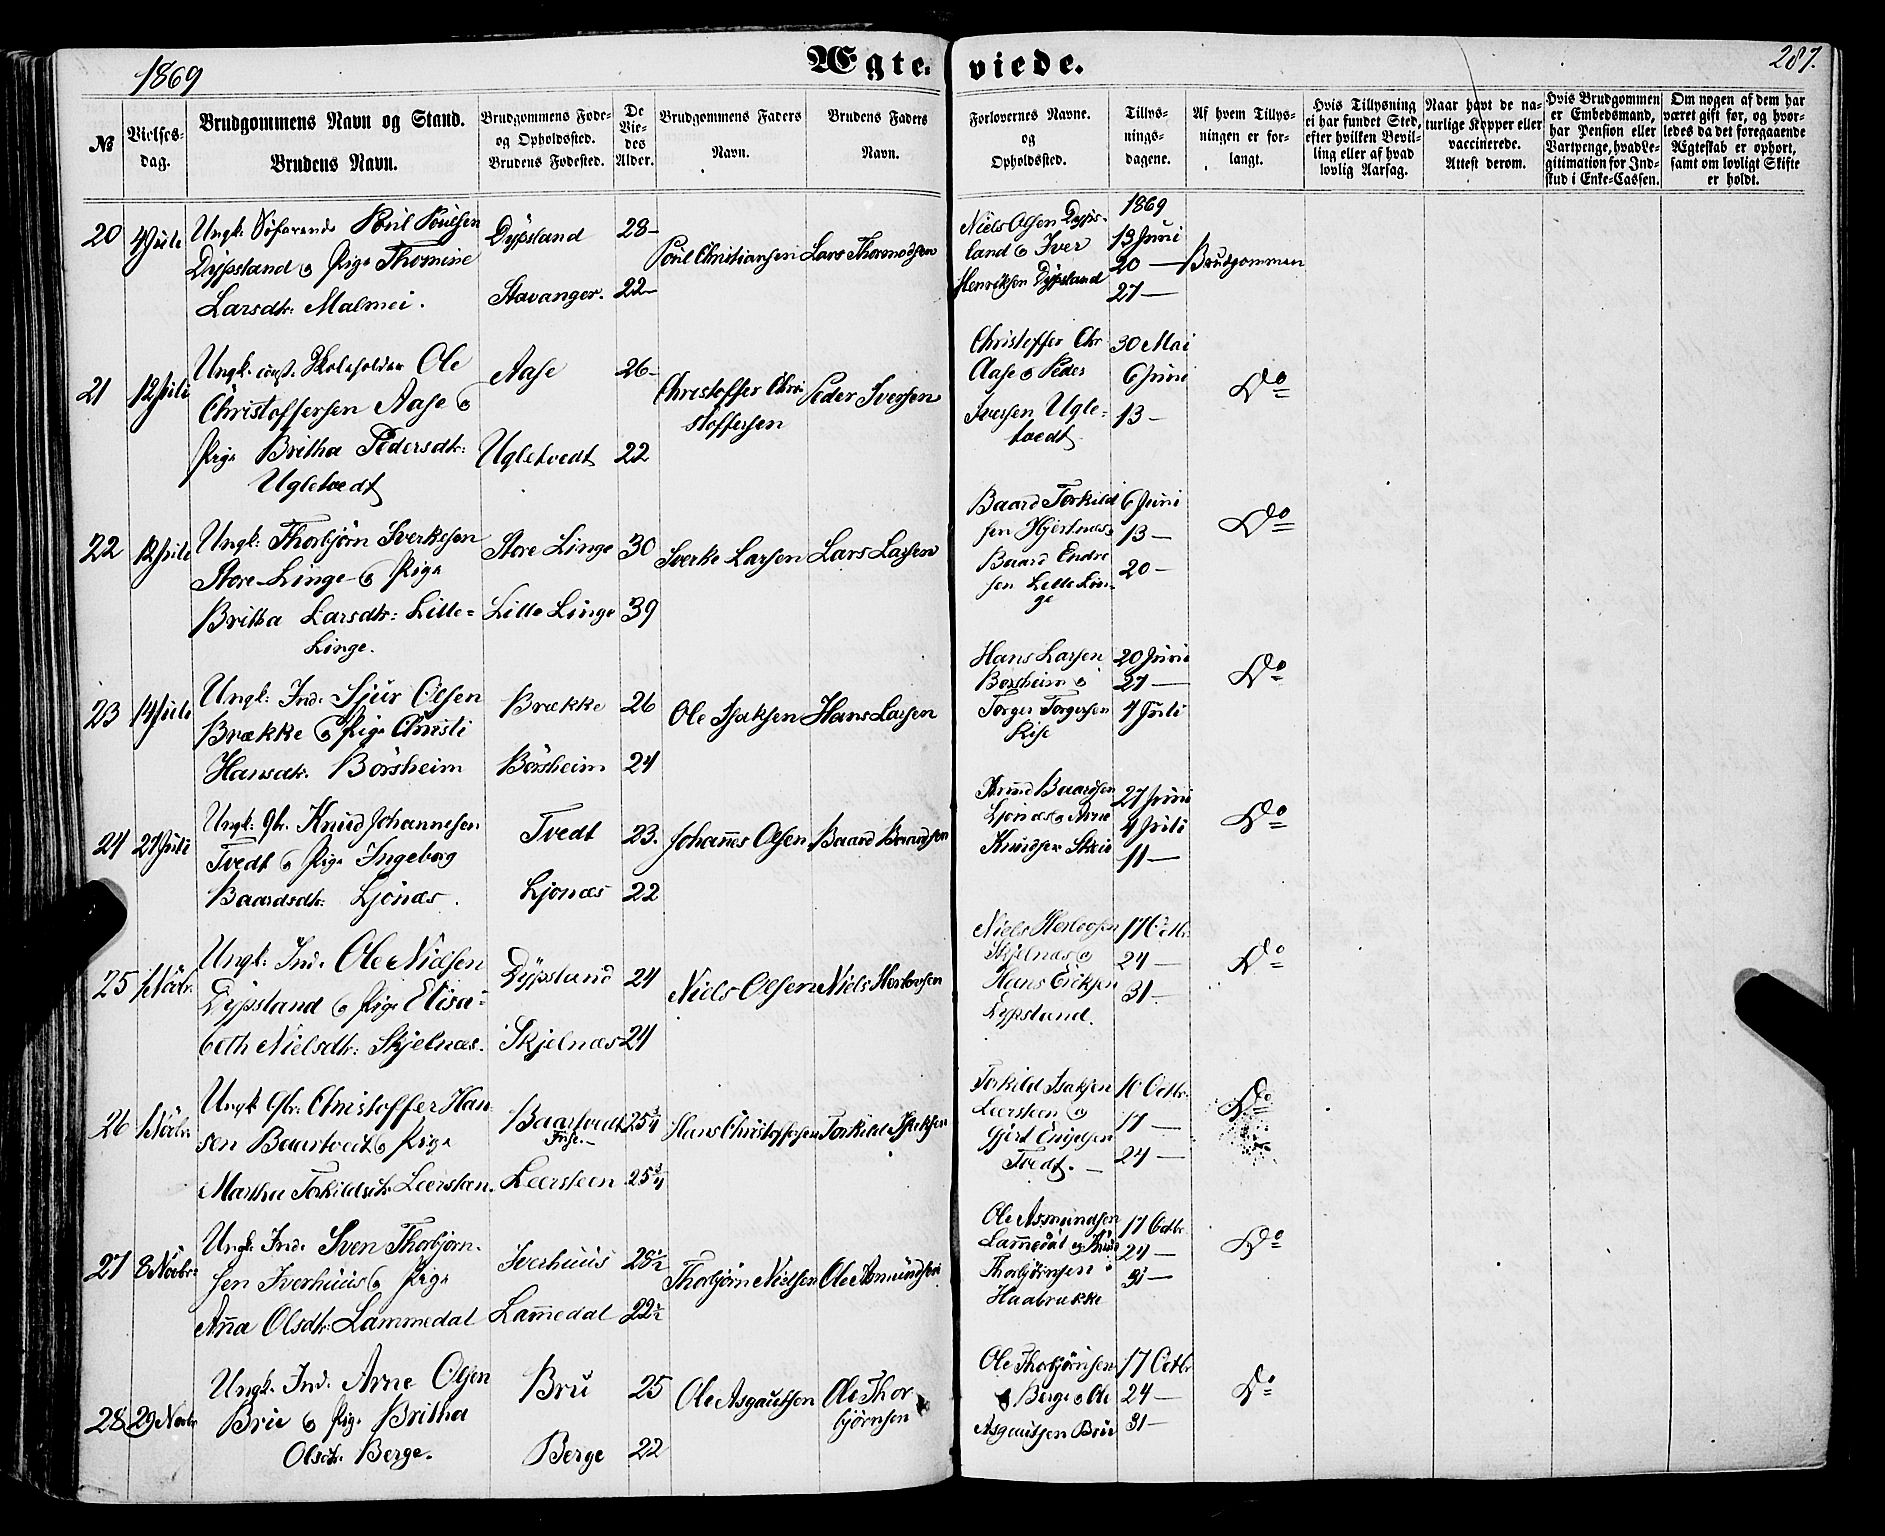 1869
Ægte-
viede.
287.
No
Vielses-
dag.
Brudgommens Navn og Stand.
Brudens Navn.
Brudgommens Føde-
og Opholdssted.
Brudens Fødested.
De
Vie-
des
Alder.
Brudgommens Faders
Navn.
Brudens Faders
Navn.
Forlovernes Navne.
og
Opholdssted.
Tillys-
nings-
dagene.
Af hvem Tillys-
ningen er for-
langt.
Hvis Tillysning
ei har fundet Sted,
efter hvilken Bevil-
ling eller af hvad
lovlig Aarsag.
Naar havt de na-
turlige Kopper eller
vaccinerede.
Attest derom.
Hvis Brudgommen
er Embedsmand,
har Pension eller
Vartpenge, hvad Le-
gitimation for Ind-
skud i Enke-Cassen.
Om nogen af dem har
været gift før, og hvor-
ledes da det foregaaende
Ægteskab er ophørt,
samt om lovligt Skifte
er holdt.
20
4 Juli
Ungk. Søfarende Poul Poulsen
Dypsland og Pige Thomine
Larsdtr. Malmei.
Dypsland
Stavanger.
28-
22-
Poul Christiansen
Lars Thormodsen
Niels Olsen Dyps-
land og Iver
Henriksen Dypsland
1869
13 Juni
20 —
27 —
Brudgommen
21
12 Juli
Ungk. const. Skoleholder Ole
Christoffersen Aase og
Pige Britha Pedersdtr:
Ugletvedt
Aase
Ugletvedt
26-
22
Christoffer Chri
stoffersen
Peder Iversen
Christoffer Chr
Aase og Peder
Iversen Ugle-
tvedt
30 Mai
6 Juni
13 —
Do
22
12 Juli
Ungk: Thorbjørn Sverkesen
Store-Linge og Pige
Britha Larsdtr: Lille-
Linge.
Store Linge
Lille Linge
30
39
Sverke Larsen
Lars Larsen
Baard Torkild
sen Hjertnæs
Baard Endre
sen Lille Lin-
ge
6 Juni
13 —
20 —
Do
23
14 Juli
Ungk: Ind. Sjur Olsen
Brække og Pige Christi
Hansdtr. Börsheim
Brække
Börsheim
26
24
Ole Isaksen
Hans Larsen
Hans Larsen
Borsheim og
Torger Torgersen
Rise
20 Juni
27 —
4 Juli
Do
24
27 Juli
Ungk. gbr. Knud Johannesen
Tvedt og Pige Ingeborg
Baardsdtr: Ljönæs.
Tvedt
Ljonæs
23.
22
Johannes Olsen
Baard Baardsen
Baardsen
Ljonæs og Arne
Knudsen
27 Juni
4 Juli
11 —
Do
25
1 Növbr
Ungk: Ind. Ole Nielsen
Dypsland og Pige Elisa-
beth Nielsdtr: Skjelnæs.
Dypsland
Skjelnæs
24
24
Niels Olsen
Niels Herlovsen
Niels Herlovsen
Skjelnæs og
Hans Eriksen
Dypsland.
17 Octbr.
24 —
31 —
Do
26
1 Növbr
Ungk gbr. Christoffer Han-
sen Baartvedt og Pige
Martha Torkildsdtr. Leersten.
Baartvedt
Fuse.—
Leersteen
25¾
25¾
Hans Christoffersen
Torkild Isaksen
Torkild Isaksen
Leersteen og
Gjert Engelsen
Tvedt. —
10 Octbr.
17 —
24 —
Do
27
8 Növbr:
Ungk. Ind. Sven Thorbjørn-
sen Iverhuus og Pige
Anna Olsdtr. Lammedal
Iverhuus
Lammedal
28½
22½
Thorbjörn Nielsen
Ole Asmundsen
Ole Asmundsen
Lammedal og
Thorbjørnsen
Haabrække
17 Octbr.
24 —
31 —
Do
28
29 Novbr
Ungk. Ind. Arne Olsen
Bru og Pige Britha
Olsdtr. Berge.
Bru
Berge
25
22
Ole Asgautsen
Ole Thor
bjørnsen
Ole Thorbjörnsen
Berge og Ole
Asgautsen Bru
17 Octbr
24 —
31 —
Do